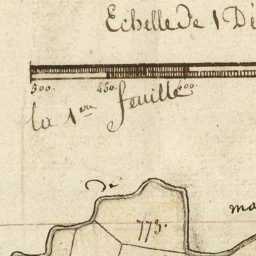 Echelle de 1 Di
300. 450. 600.
la 1ere feuille
de
ma
773.